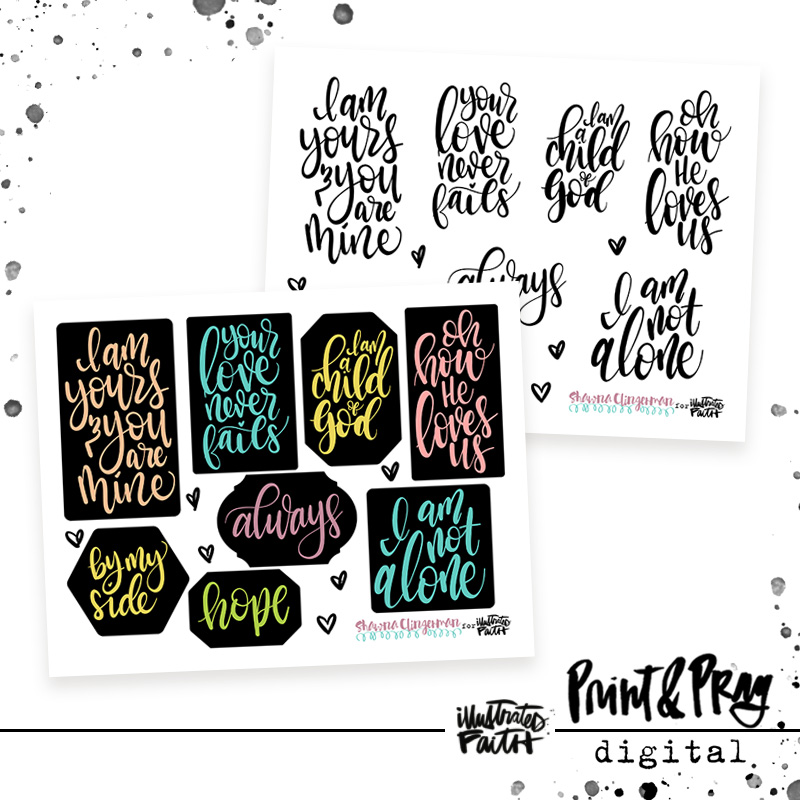 I am
yours
& you
are
mine
your
love
never
fails
I am
a
child
of
God
oh
how
He
loves
us
always
I am
not
alone
Shawna Clingerman for illustrated
FAITH
I am
yours
& you
are
mine
your
love
never
fails
I am
a
child
of
God
oh
how
He
loves
us
always
I am
not
alone
by my
side
hope
Shawna Clingerman for illustrated
FAITH
illustrated
FAITH
Print & Pray
digital